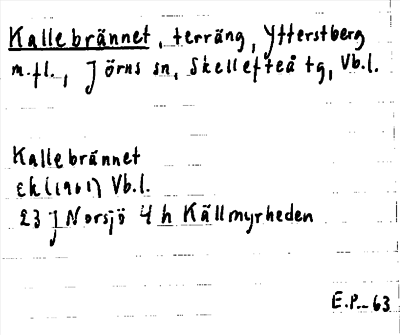 Kallebrännet, terräng, Ytterstberg
m.fl., Jörns sn, Skellefteå tg, Vb.l.
Kallebrännet
Ek(1961) Vb.l.
23 J Norsjö 4 h Källmyrheden
E.P.-63